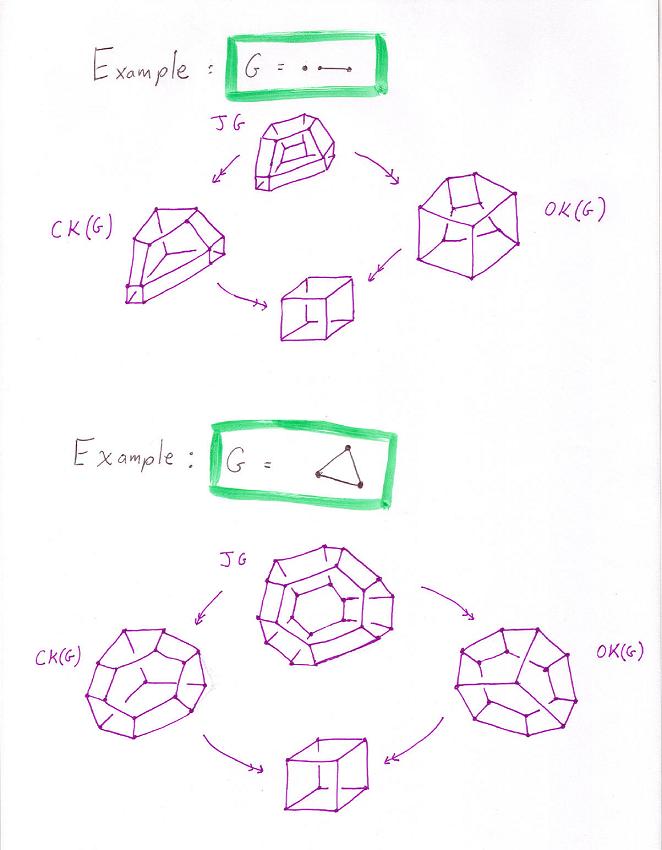 Example : G =
JG
CK(G)
OK(G)
Example : G =
JG
CK(G)
OK(G)